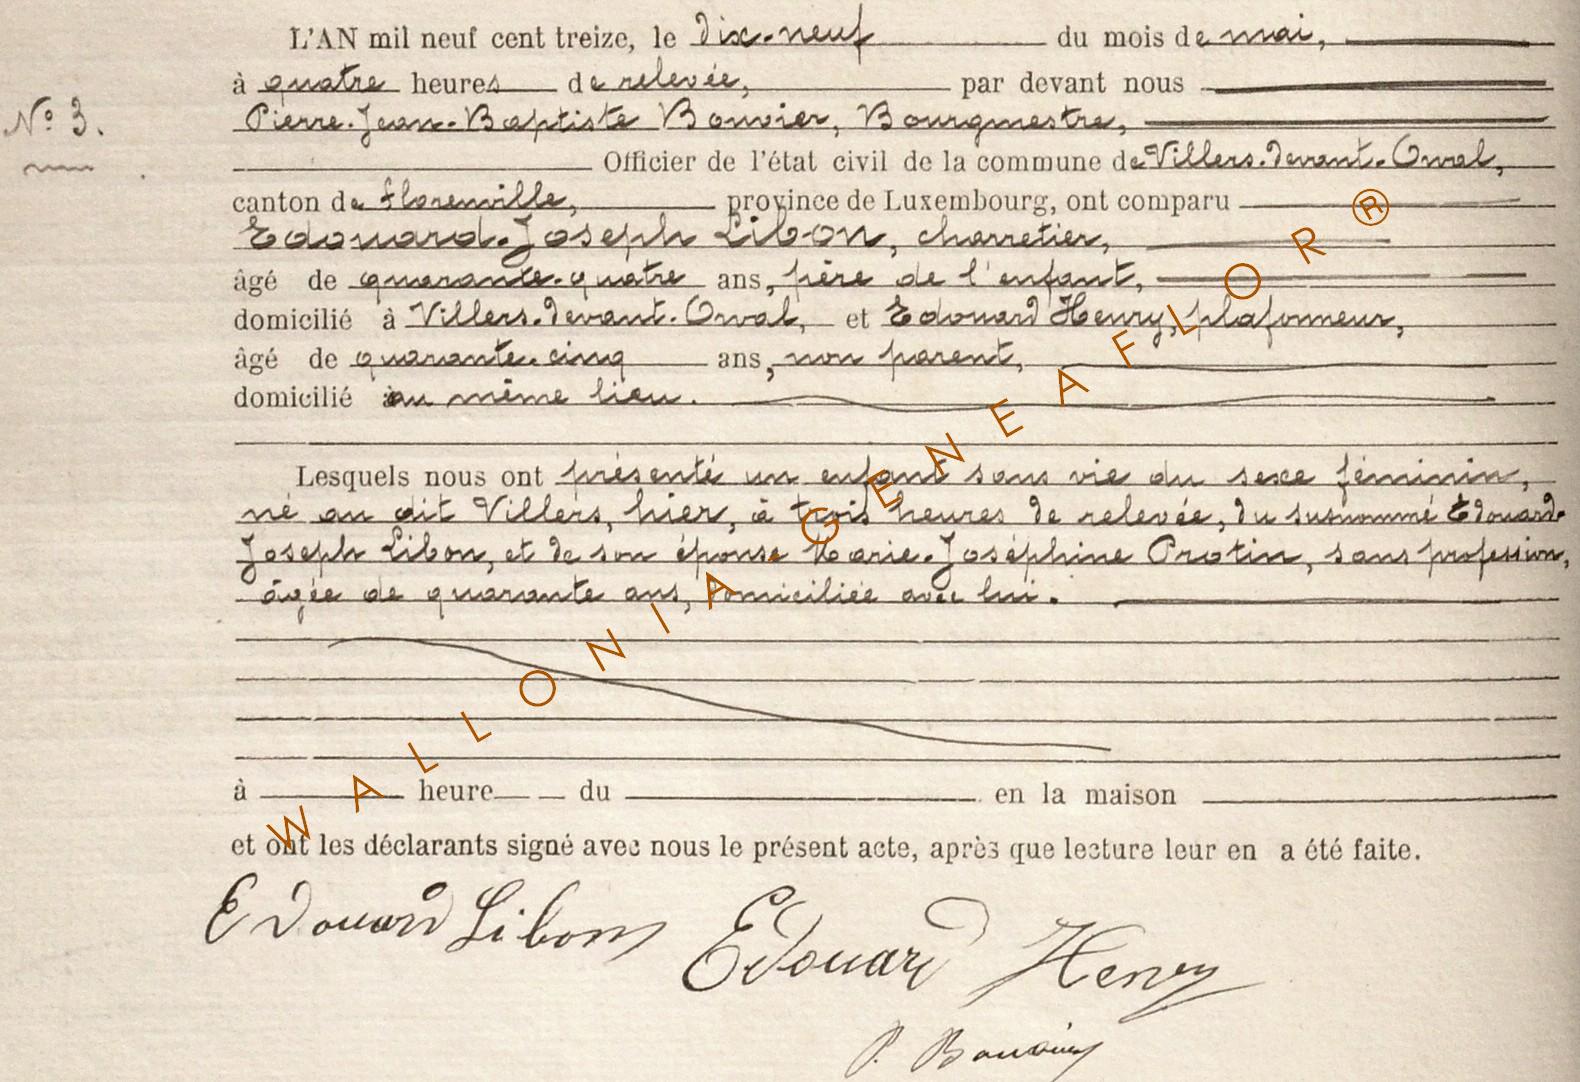 L'AN mil neuf cent treize, le dix-neuf du mois de mai,
à quatre heures de relevée, par devant nous
N° 3.
Pierre-Jean-Baptiste Bouvier, Bourgmestre,
Officier de l'état civil de la commune de Villers-devant-Orval,
canton de Florenville, province de Luxembourg, ont comparu
Edouard-Joseph Libon, charretier,
âgé de quarante-quatre ans, père de l'enfant,
domicilié à Villers-devant-Orval, et Edouard Henry, plafonneur,
âgé de quarante-cinq ans, non parent,
domicilié au même lieu.
Lesquels nous ont présenté un enfant sans vie du sexe féminin,
né au dit Villers, hier, à trois heures de relevée, du susnommé Edouard-
Joseph Libon, et de son épouse Marie-Joséphine Protin, sans profession,
âgée de quarante ans, domiciliée avec lui.
à heure du en la maison
et ont les déclarants signé avec nous le présent acte, après que lecture leur en a été faite.
Edouard Libon
Edouard Henry
P. Bouvier
WALLONIA-GENEAFLOR®